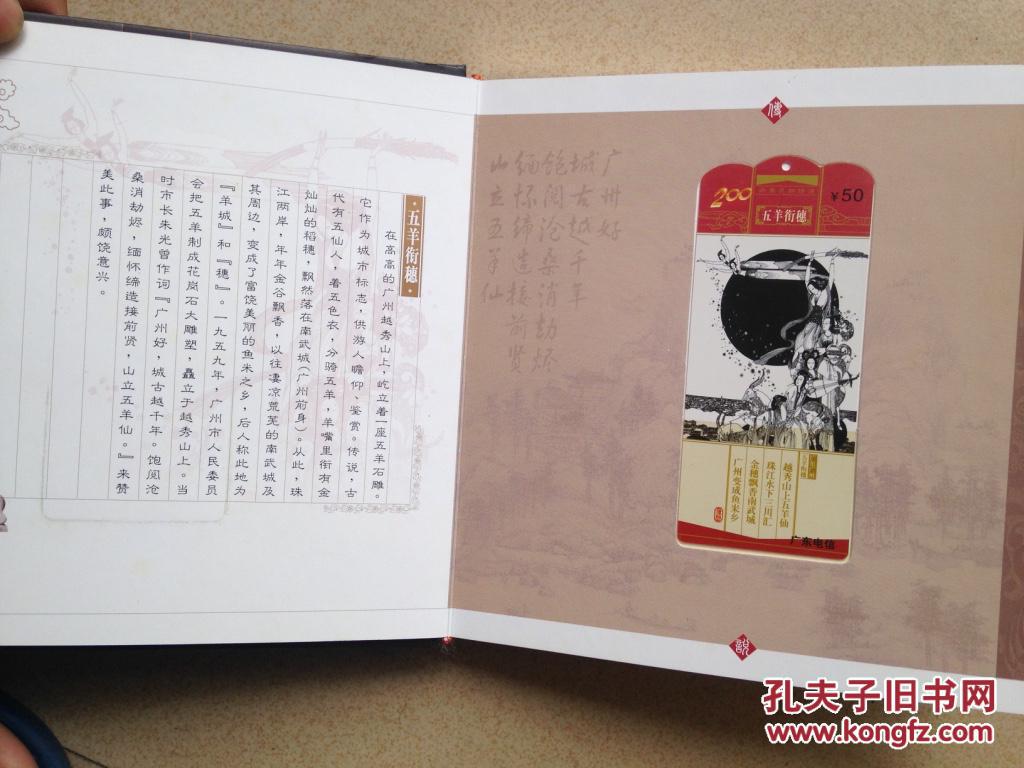 ·五羊衔穗·
在高高的广州越秀山上，屹立着一座五羊石雕。
它作为城市标志，供游人瞻仰、鉴赏。传说，古
代有五仙人，着五色衣，分骑五羊，羊嘴里衔有金
灿灿的稻穗，飘然落在南武城（广州前身）。从此，珠
江两岸，年年金谷飘香，以往凄凉荒芜的南武城及
其周边，变成了富饶美丽的鱼米之乡，后人称此地为
『羊城』和『穗』。一九五九年，广州市人民委员
会把五羊制成花岗石大雕塑，矗立于越秀山上。当
时市长朱光曾作词『广州好，城古越千年。饱阅沧
桑消劫烬，缅怀缔造接前贤，山立五羊仙。』来赞
美此事，颇饶意兴。
广州好
城古越千年
饱阅沧桑消劫烬
缅怀缔造接前贤
山立五羊仙
传
200
¥50
五羊衔穗
越秀山上五羊仙
珠江水下三川汇
金穗飘香南武城
广州变成鱼米乡
广东电信
说
孔夫子旧书网
www.kongfz.com